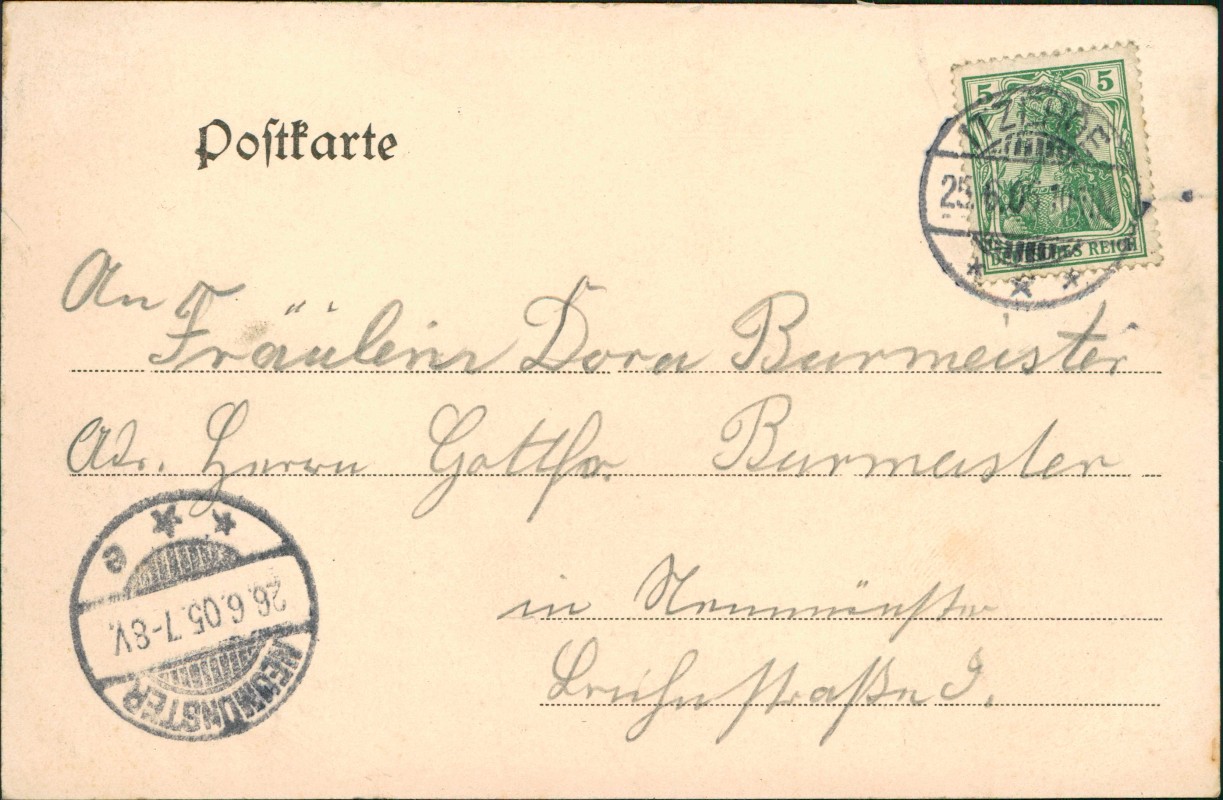 Postkarte
5 5
DEUTSCHES REICH
ITZEHOE
25.6.05
An
Fräulein Dora Burmeister
Adr. Herrn Gottfr. Burmeister
in Neumünster
straße
NEUMÜNSTER
26.6.05.7-8V.
e